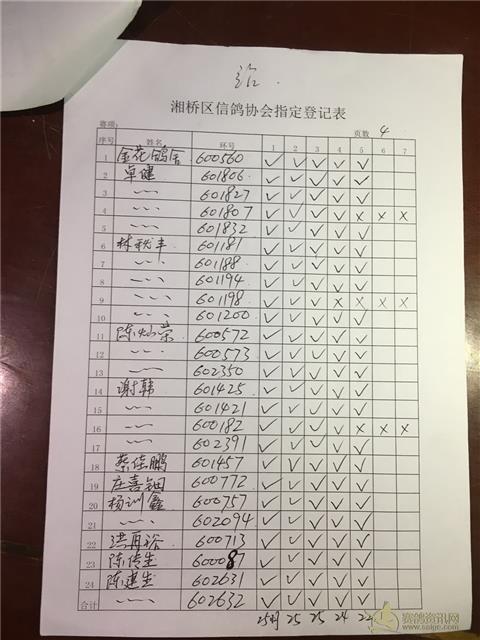 湘桥区信鸽协会指定登记表
赛项: 页数 4
序号 姓名 环号 1 2 3 4 5 6 7
1 金花鸽舍 600560 ✓ ✓ ✓ ✓ ✓
2 卓健 601806 ✓ ✓ ✓ ✓ ✓
3 〃 601827 ✓ ✓ ✓ ✓ ✓
4 〃 601807 ✓ ✓ ✓ ✓ × × ×
5 〃 601832 ✓ ✓ ✓ ✓ ✓
6 林秋丰 601181 ✓ ✓ ✓ ✓ ✓
7 〃 601188 ✓ ✓ ✓ ✓ ✓
8 〃 601194 ✓ ✓ ✓ ✓ ✓
9 〃 601198 ✓ ✓ ✓ × × × ×
10 〃 601200 ✓ ✓ ✓ ✓ ✓
11 陈灿荣 600572 ✓ ✓ ✓ ✓ ✓
12 〃 600573 ✓ ✓ ✓ ✓ ✓
13 〃 602350 ✓ ✓ ✓ ✓ ✓
14 谢韩 601425 ✓ ✓ ✓ ✓ ✓
15 〃 601421 ✓ ✓ ✓ ✓ ✓
16 〃 600182 ✓ ✓ ✓ ✓ × × ×
17 〃 602391 ✓ ✓ ✓ ✓ ✓
18 蔡佳鹏 601457 ✓ ✓ ✓ ✓ ✓
19 庄喜钿 600772 ✓ ✓ ✓ ✓ ✓
20 杨训鑫 600757 ✓ ✓ ✓ ✓ ✓
21 〃 602094 ✓ ✓ ✓ ✓ ✓
22 洪再裕 600713 ✓ ✓ ✓ ✓ ✓
23 陈传生 600087 ✓ ✓ ✓ ✓ ✓
24 陈建生 602631 ✓ ✓ ✓ ✓ ✓
合计 〃 602632 ✓ ✓ ✓ ✓ ✓
25 25 24 22
赛鸽资讯网
www.saige.com